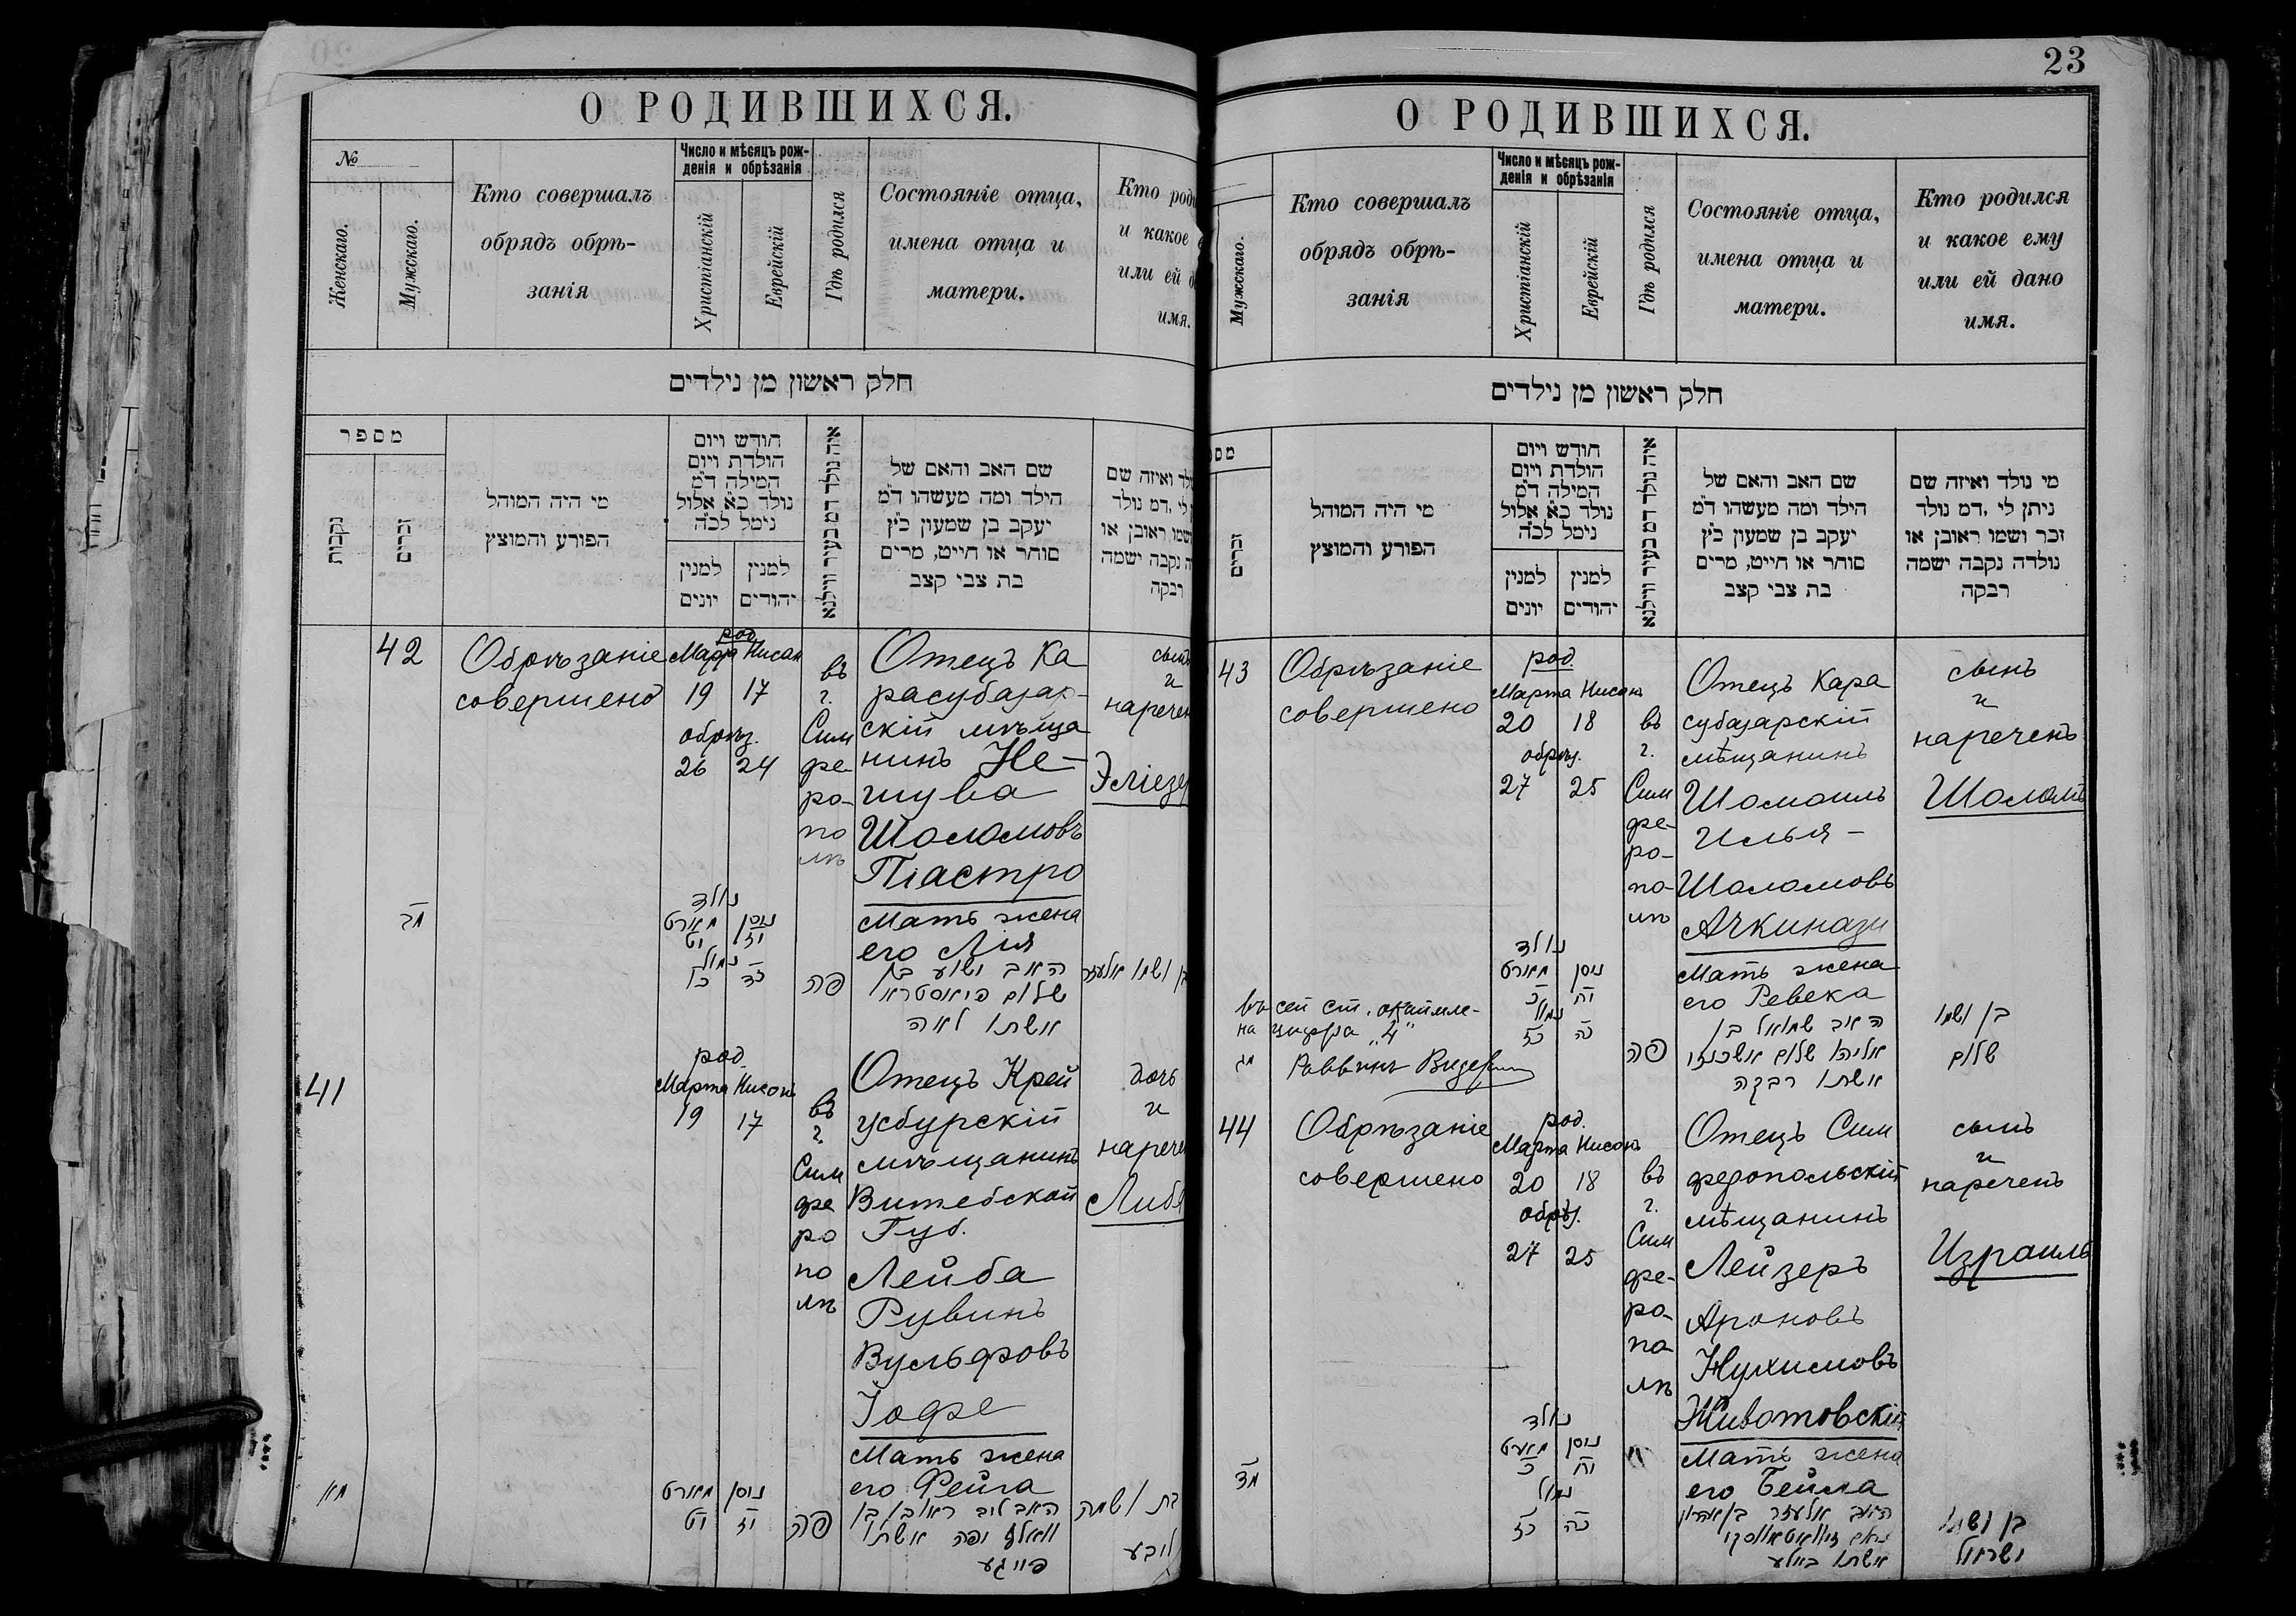 23
О РОДИВШИХСЯ.
№
Женскаго.
Мужскаго.
Кто совершалъ
обрядъ обрѣ-
занія
Число и мѣсяцъ рож-
денія и обрѣзанія
Христіанскій
Еврейскій
Гдѣ родился
Состояніе отца,
имена отца и
матери.
Кто
и какое
или ей
имя.
חלק ראשון מן נילדים
מספר
נקבות
זכרים
מי היה המוהל
הפורע והמוצץ
חודש ויום
הולדת ויום
המילה ד״מ
נולד כ״א אלול
נימל לכ״ה
למנין
יונים
למנין
יהודים
איה נולד דמ בעיר ווילנא
שם האב והאם של
הילד ומה מעשהו ד״מ
יעקב בן שמעון כ״ץ
סוחר או חייט, מרים
בת צבי קצב
ואיזה שם
לי ,דמ נולד
ראובן או
נקבה ישמה
רבקה
42
Обрѣзаніе
совершено
род.
Марта Нисан
19 17
обрѣз.
26 24
въ
г.
Сим
фе-
ро-
по
лѣ
Отецъ Ка
расубазар-
скій мѣща
нинъ Не-
шува
Шоломовъ
Піастро
Мать жена
его Лія
сынъ
и
наречен
Эліезер
מב
נולד
מארט ניסן
יט יז
נמול
כו כד
פה
האב ישוע בן
שלום פיאסטרא
אשתו לאה
בן ושמו אלעזר
41
род.
Марта Нисонъ
19 17
въ
г.
Сим
фе
ро
по
лѣ
Отецъ Крей
усбурскій
мѣщанинъ
Витебской
Губ.
Лейба
Рувинъ
Вульфовъ
Іофе
Мать жена
его Фейга
дочь
и
нарече
Либа
מא
מארט ניסן
יט יז
פה
האב ליב ראובן בן
וואלף יפה אשתו
פייגע
בת ושמה
ליבע
О РОДИВШИХСЯ.
Мужскаго.
Кто совершалъ
обрядъ обрѣ-
занія
Число и мѣсяцъ рож-
денія и обрѣзанія
Христіанскій
Еврейскій
Гдѣ родился
Состояніе отца,
имена отца и
матери.
Кто родился
и какое ему
или ей дано
имя.
חלק ראשון מן נילדים
זכרים
מי היה המוהל
הפורע והמוצץ
חודש ויום
הולדת ויום
המילה ד״מ
נולד כ״א אלול
נימל לכ״ה
למנין
יונים
למנין
יהודים
איה נולד דמ בעיר ווילנא
שם האב והאם של
הילד ומה מעשהו ד״מ
יעקב בן שמעון כ״ץ
סוחר או חייט, מרים
בת צבי קצב
מי נולד ואיזה שם
ניתן לי ,דמ נולד
זכר ושמו ראובן או
נולדה נקבה ישמה
רבקה
43
Обрѣзаніе
совершено
род.
Марта Нисонъ
20 18
обрѣз.
27 25
въ
г.
Сим
фе-
ро-
по-
лѣ
Отецъ Кара
субазарскій
мѣщанинъ
Шомоилъ
Илья –
Шоломовъ
Ачкинази
Мать жена
его Ревека
сынъ
и
нареченъ
Шоломъ
Въ сей ст.
на цифра „4"
Раввинъ
מג
נולד
מארט ניסן
כ יח
נמול
כז כה
פה
האב שמואל בן
אליהו שלום אשכנזי
אשתו רבקה
בן ושמו
שלום
44
Обрѣзаніе
совершено
род.
Марта Нисонъ
20 18
обрѣз.
27 25
въ
г.
Сим
фе-
ро-
по
лѣ
Отецъ Сим
феропольскій
мѣщанинъ
Лейзеръ
Ароновъ
Нухимовъ
Животовскій
Мать жена
его Бейла
сынъ
и
нареченъ
Израиль
מד
נולד
מארט ניסן
כ יח
נמול
כז כה
האב אלעזר בן אהרון
אשתו ביילע
בן ושמו
ישראל